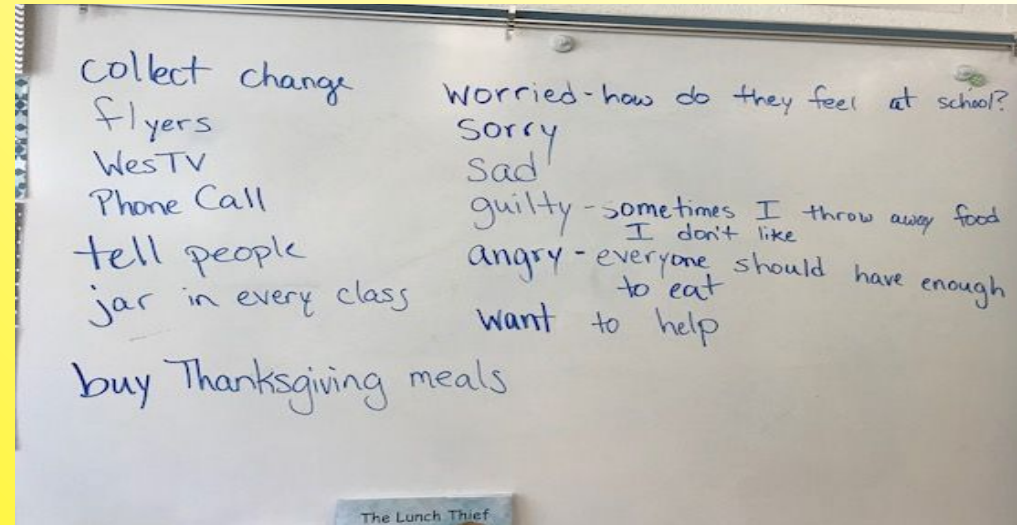 collect change
flyers
WesTV
Phone Call
tell people
jar in every class
buy Thanksgiving meals
worried - how do they feel at school?
sorry
sad
guilty - sometimes I throw away food
I don't like
angry - everyone should have enough
to eat
want to help
The Lunch Thief